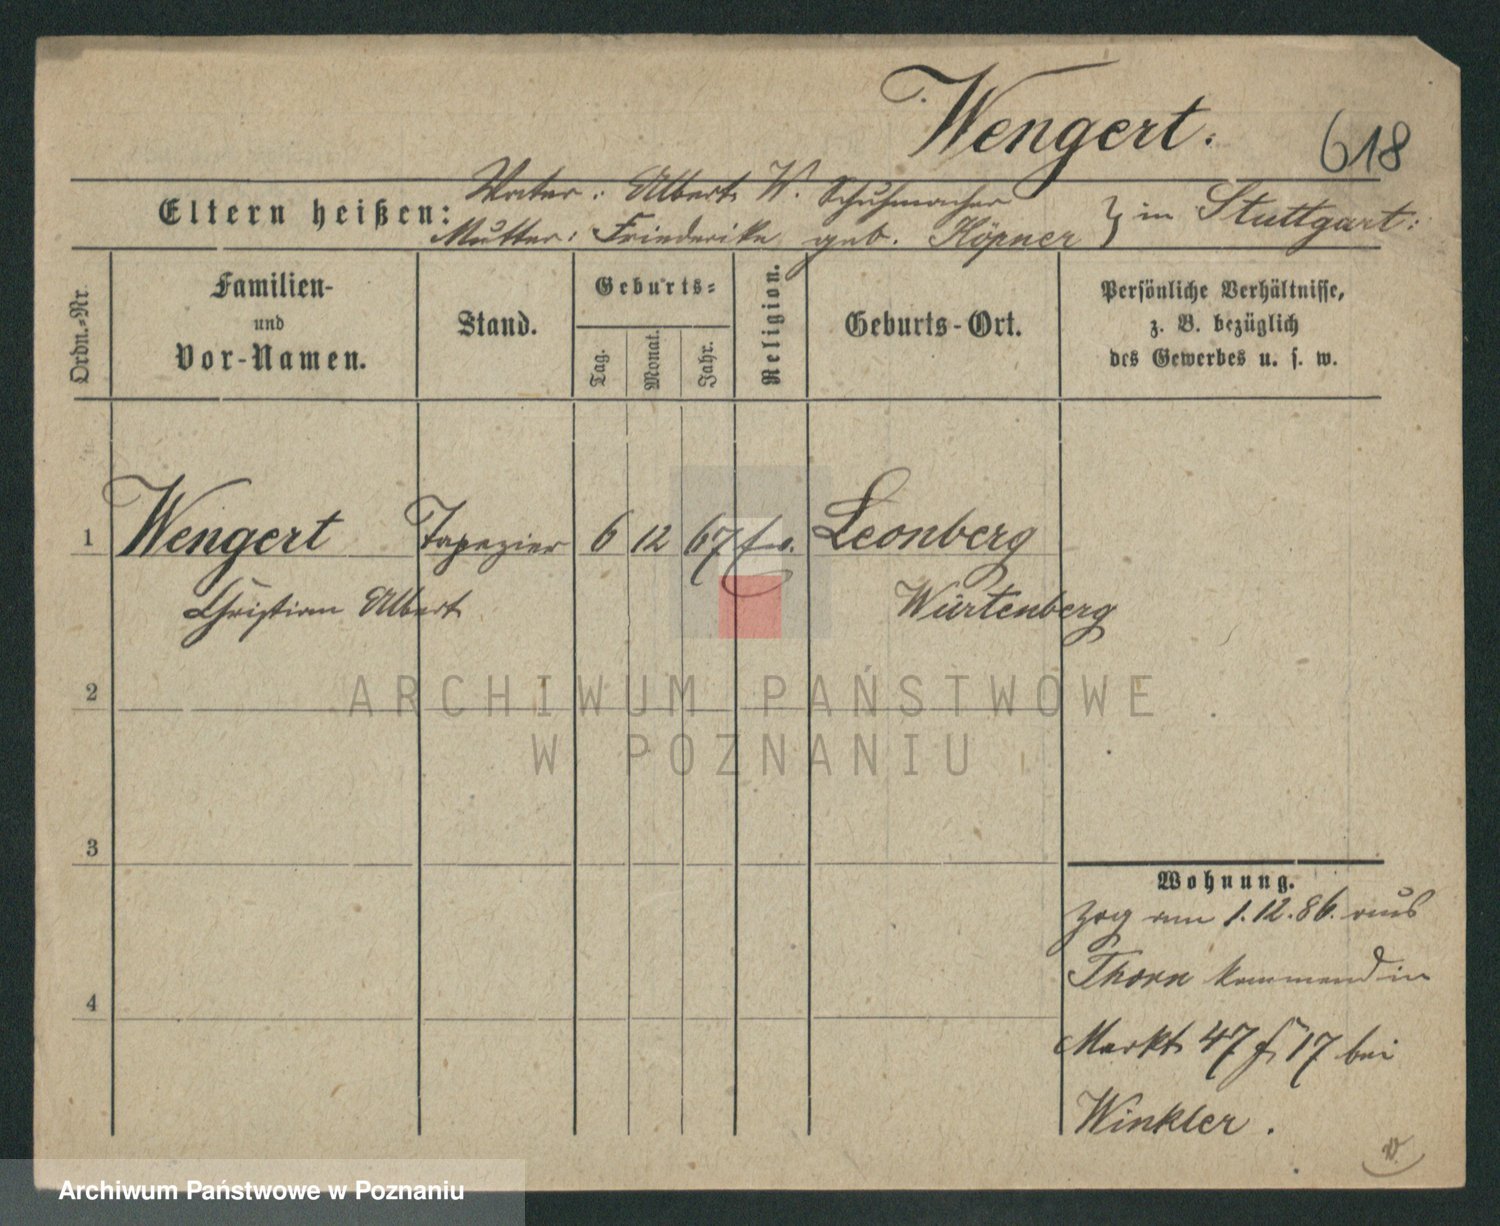 Wengert.
618
Eltern heißen:
Vater: Albert W. Schuhmacher
Mutter: Friederike geb. Höpner } in Stuttgart:
Ordn.-Nr.
Familien-
und
Vor-Namen.
Stand.
Geburts-
Tag.
Monat.
Jahr.
Religion.
Geburts-Ort.
Persönliche Verhältnisse,
z. B. bezüglich
des Gewerbes u. s. w.
1 Wengert Tapezier 6 12 67 ev. Leonberg
Christian Albert Würtenberg
2
3
4
Wohnung.
Zog am 1.12.86. aus
Thorn kommend in
Markt 47 f. 17 bei
Winkler.
ARCHIWUM PAŃSTWOWE
W POZNANIU
Archiwum Państwowe w Poznaniu